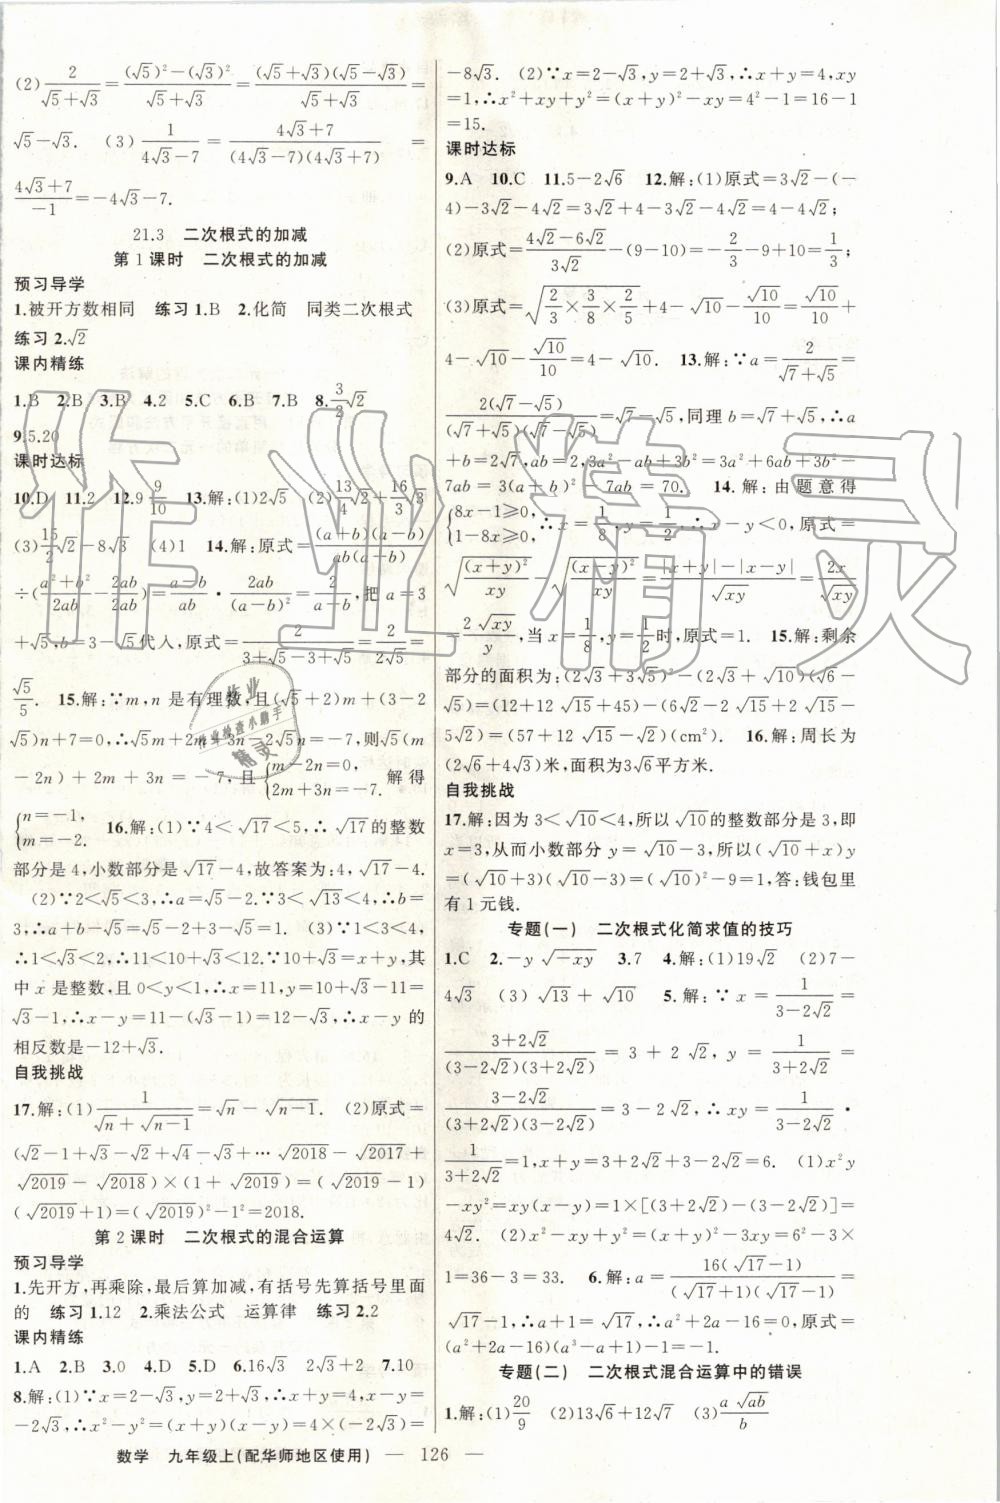 (2) 2/(√5+√3)=((√5)²-(√3)²)/(√5+√3)=(√5+√3)(√5-√3)/(√5+√3)=
√5-√3. (3) 1/(4√3-7)=(4√3+7)/((4√3-7)(4√3+7))=
(4√3+7)/(-1)=-4√3-7.
21.3 二次根式的加减
第1课时 二次根式的加减
预习导学
1.被开方数相同 练习1.B 2.化简 同类二次根式
练习2.√2
课内精练
1.B 2.B 3.B 4.2 5.C 6.B 7.B 8.(3/2)√2
9.5.20
课时达标
10.D 11.2 12.9 9/10 13.解:(1)2√5 (2)(13/4)√2+(16/3)√3
(3)(15/2)√2-8√3 (4)1 14.解:原式=(a+b)(a-b)/(ab(a-b))
÷((a²+b²)/2ab-2ab/2ab)=(a-b)/ab·2ab/(a-b)²=2/(a-b),把a=3
+√5,b=3-√5代人,原式=2/(3+√5-3+√5)=2/(2√5)=
√5/5. 15.解:∵m,n是有理数,且(√5+2)m+(3-2
√5)n+7=0,∴√5m+2m+3n-2√5n=-7,则√5(m
-2n)+2m+3n=-7,且{m-2n=0, 2m+3n=-7. 解得
{n=-1, m=-2. 16.解:(1)∵4<√17<5,∴√17的整数
部分是4,小数部分是√17-4,故答案为:4,√17-4.
(2)∵2<√5<3,∴a=√5-2.∵3<√13<4,∴b=
3,∴a+b-√5=√5-2+3-√5=1. (3)∵1<3<4,
∴1<√3<2,∴11<10+√3<12.∵10+√3=x+y,其
中x是整数,且0<y<1,∴x=11,y=10+√3-11=
√3-1,∴x-y=11-(√3-1)=12-√3,∴x-y的
相反数是-12+√3.
自我挑战
17.解:(1) 1/(√n+√(n-1))=√n-√(n-1). (2)原式=
(√2-1+√3-√2+√4-√3+…√2018-√2017+
√2019-√2018)×(1+√2019)=(√2019-1)
(√2019+1)=(√2019)²-1²=2018.
第2课时 二次根式的混合运算
预习导学
1.先开方,再乘除,最后算加减,有括号先算括号里面
的 练习1.12 2.乘法公式 运算律 练习2.2
课内精练
1.A 2.B 3.0 4.D 5.D 6.16√3 2√3+2 7.10
8.解:(1)∵x=2-√3,y=2+√3,∴x+y=4,x-y=
-2√3,∴x²-y²=(x+y)(x-y)=4×(-2√3)=
-8√3. (2)∵x=2-√3,y=2+√3,∴x+y=4,xy
=1,∴x²+xy+y²=(x+y)²-xy=4²-1=16-1
=15.
课时达标
9.A 10.C 11.5-2√6 12.解:(1)原式=3√2-(-
4)-3√2-4√2=3√2+4-3√2-4√2=4-4√2;
(2)原式=(4√2-6√2)/(3√2)-9+10=-2/3-9+10=1/3;
(3)原式=√(2/3×3/8×5/8)+4-√10-√10/10=√10/10+
4-√10-√10/10=4-√10. 13.解:∵a=2/(√7+√5)=
2(√7-√5)/((√7+√5)(√7-√5))=√7-√5,同理b=√7+√5,∴a
+b=2√7,ab=2,3a²-ab+3b²=3a²+6ab+3b²-
7ab=3(a+b)²-7ab=70. 14.解:由题意得
{8x-1≥0, 1-8x≥0, ∴x=1/8,y=1/2,∴x-y<0,原式=
√((x+y)²/xy)-√((x-y)²/xy)=(|x+y|-|x-y|)/√xy=2x/√xy
=2√xy/y,当x=1/8,y=1/2时,原式=1. 15.解:剩余
部分的面积为:(2√3+3√5)²-(2√3+√10)(√6-
√5)=(12+12√15+45)-(6√2-2√15+2√15-
5√2)=(57+12√15-√2)(cm²). 16.解:周长为
(2√6+4√3)米,面积为3√6平方米.
自我挑战
17.解:因为3<√10<4,所以√10的整数部分是3,即
x=3,从而小数部分y=√10-3,所以(√10+x)y
=(√10+3)(√10-3)=(√10)²-9=1,答:钱包里
有1元钱.
专题(一) 二次根式化简求值的技巧
1.C 2.-y√(-xy) 3.7 4.解:(1)19√2 (2)7-
4√3 (3)√13+√10 5.解:∵x=1/(3-2√2)=
(3+2√2)/((3-2√2)(3+2√2))=3+2√2,y=1/(3+2√2)=
(3-2√2)/((3+2√2)(3-2√2))=3-2√2,∴xy=1/(3-2√2)·
1/(3+2√2)=1,x+y=3+2√2+3-2√2=6. (1)x²y
-xy²=xy(x-y)=1×[(3+2√2)-(3-2√2)]=
4√2. (2)x²-xy+y²=(x+y)²-3xy=6²-3×
1=36-3=33. 6.解:a=16(√17-1)/((√17+1)(√17-1))=
√17-1,∴a+1=√17,∴a²+2a-16=0,原式=
(a²+2a-16)(a³-a+1)-1=-1.
专题(二) 二次根式混合运算中的错误
1.解:(1)20/9 (2)13√6+12√3 (3)a√ab/b
数学 九年级上(配华师地区使用) — 126 —
作业精灵
作业
作业检查小助手
精灵